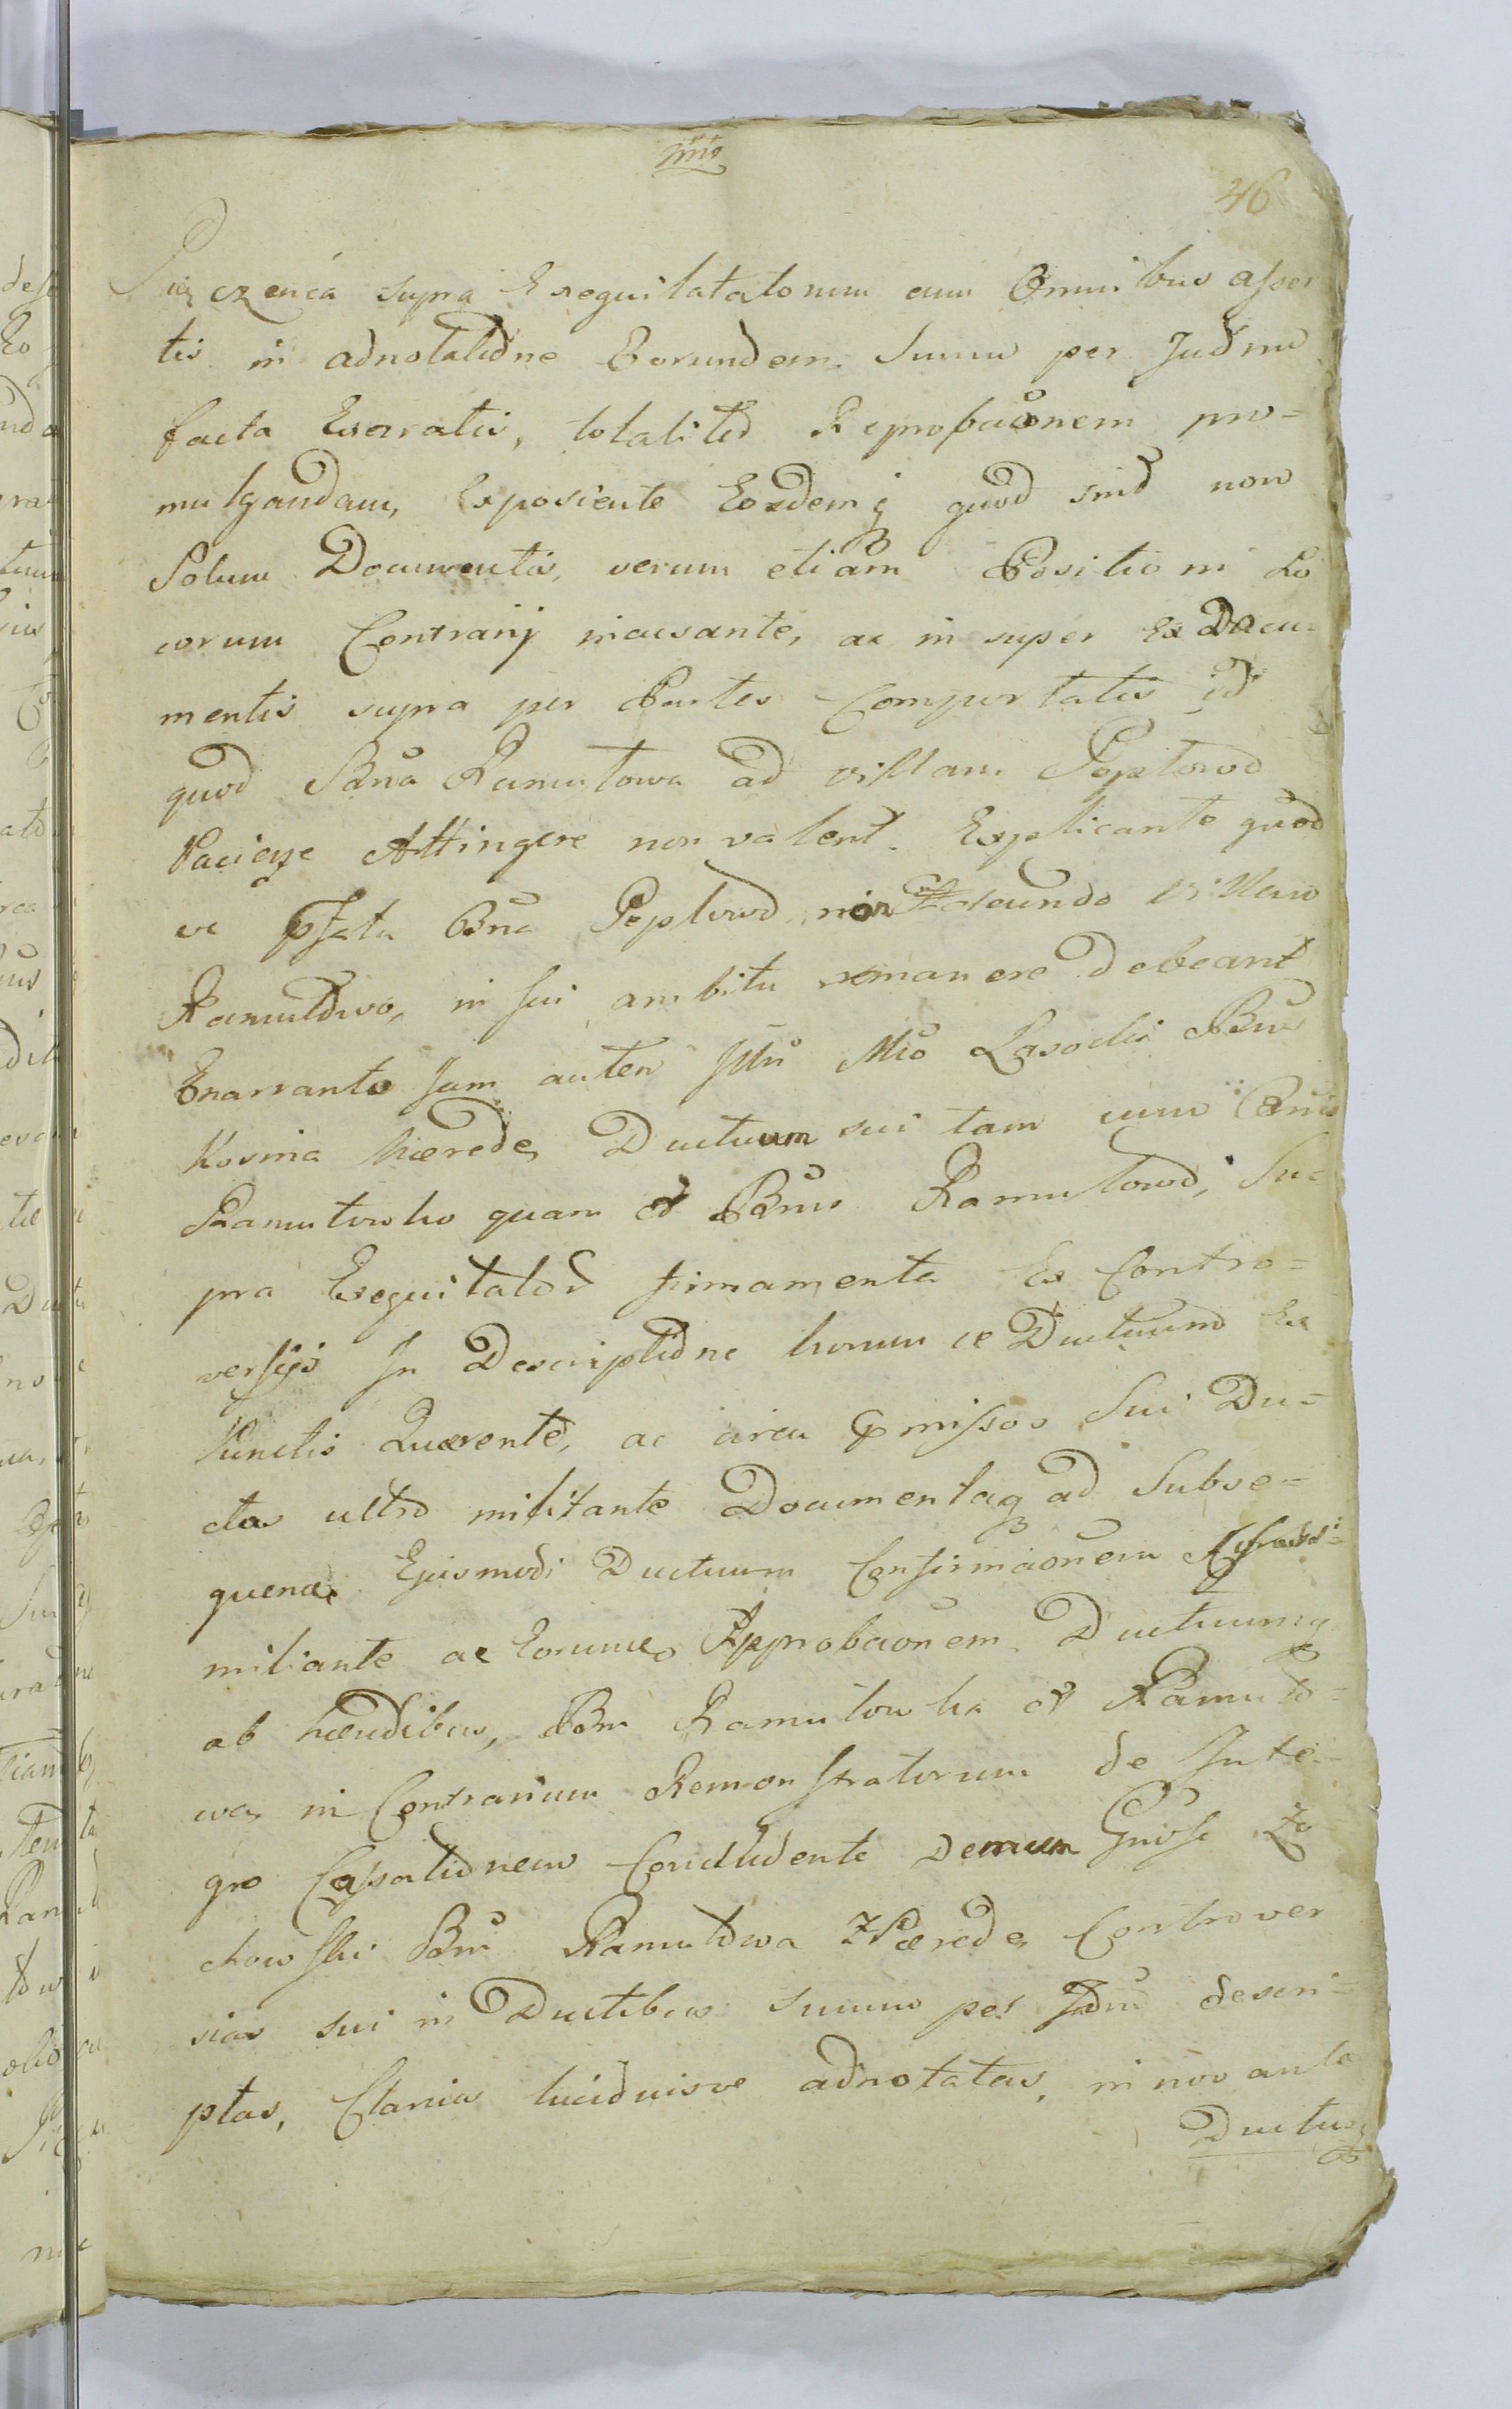 46
supra Exequitatorum cum Omnibus asser
tis in adnotatione Eorundem Suum per Judm
facta Enarratis, totaliter Reprobaonem pro=
mulgandam, Exponente Eosdemq quod sint non
Solum Documentis, verum etiam Positioni Lo
corum Contrarij incusante, ac in super Ex Docu=
mentis supra per Partes Comportatis id
quod Bna Ramutowa ad villam Peptowo
Attingere non valent. Explicante quod
ve pfata Bna Peptowo non villam
Ramutowo, in sui ambitu remanere debeant
Enarrante Jam autem Mco Lasocki Bnr
Kosmia hærede, Ductuum sui tam cum Bnis
Ramutowko quam et Bnis Ramutowo, Su=
pra Exequitator firmamenta Ex Contro=
versijs In Descriptione horum ce Ductuum Ex
Punctis Quærente, ac circa pmissos Sui Du=
ctus ultro militante Documentaq ad Subse=
quend Ejusmodi Ductuum Confirmaonem
miliante ac Eorumce Approbaonem Ductuumq
ab hæredibus, Bnr Ramutowka et Ramuto=
wa, in Contrarium Remonstratorum de Inte=
gro Cassationem Concludente Demum Gnose Zo
chowski Bnr Ramutowa Hærede, Controver
sias sui in Ductibus Suum per Jdm descri=
ptas, Clarius lucidiusve adnotatas, in nos ante
Ductus